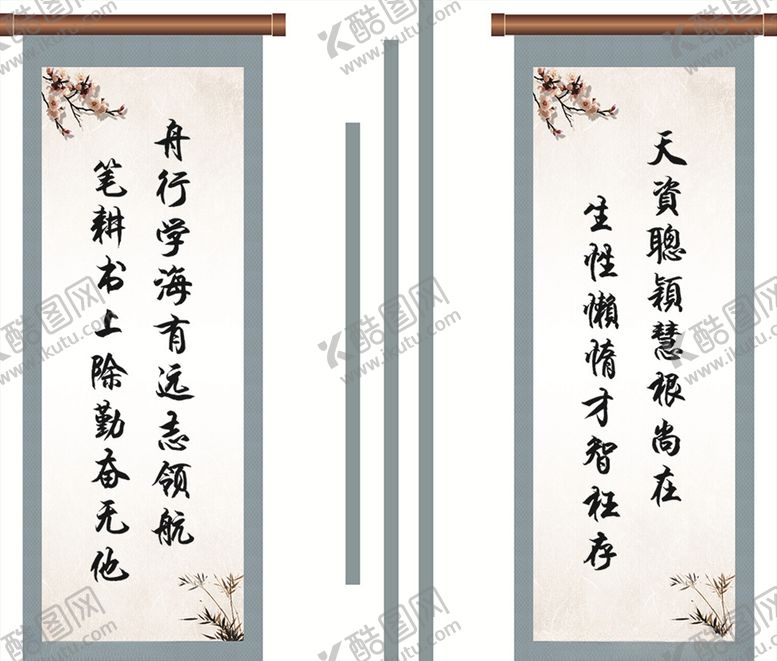 天資聰穎慧根尚在
生性懒惰才智枉存
舟行学海有远志领航
笔耕书上除勤奋无他
酷图网
www.ikutu.com